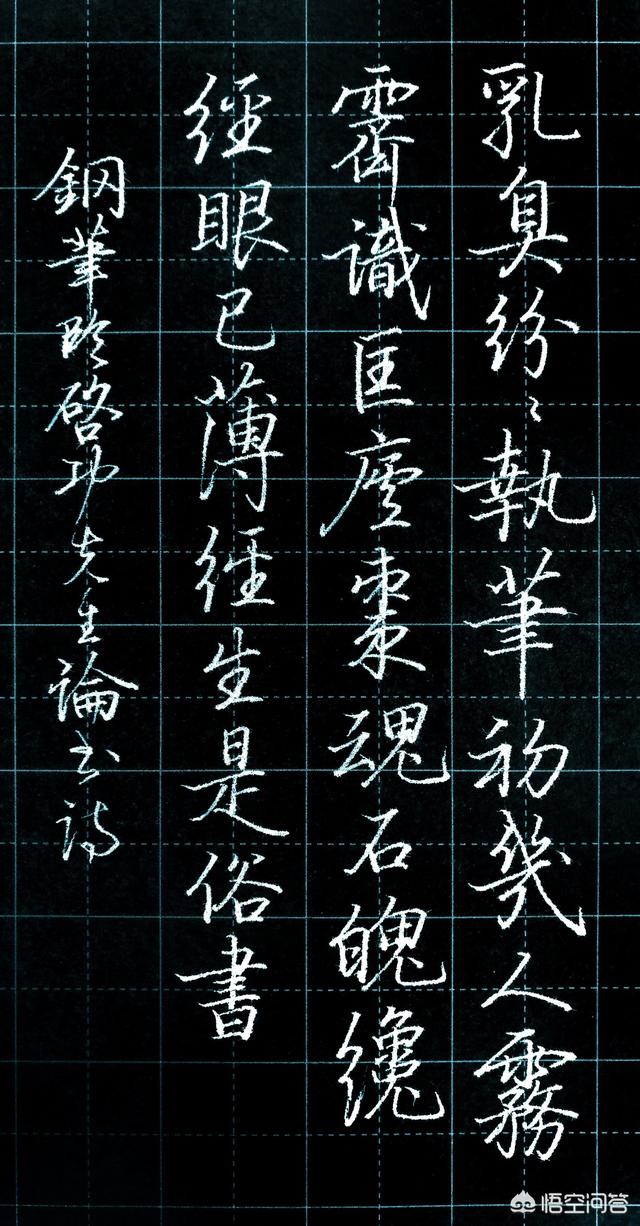 乳臭紛〻執筆初幾人霧
霽識匡廬棗魂石魄纔
經眼已薄經生是俗書
鋼筆臨啓功先生論書詩
悟空问答